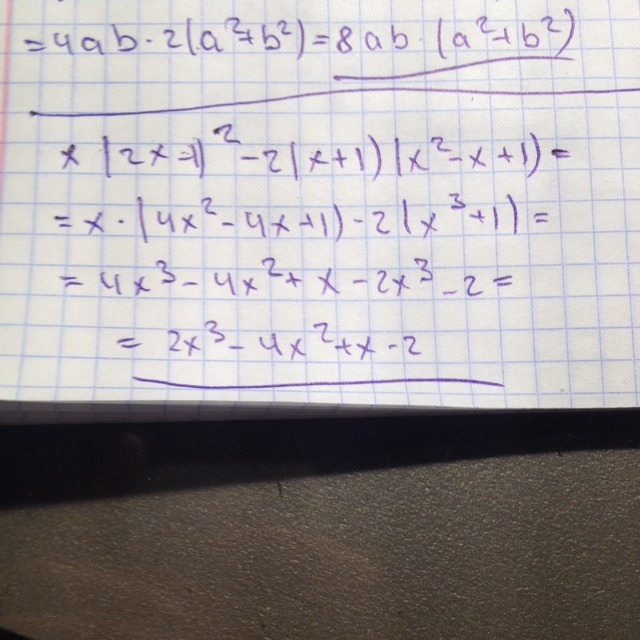 =4ab·2(a²+b²)=8ab·(a²+b²)
x(2x-1)²-2(x+1)(x²-x+1)=
=x·(4x²-4x+1)-2(x³+1)=
=4x³-4x²+x-2x³-2=
=2x³-4x²+x-2